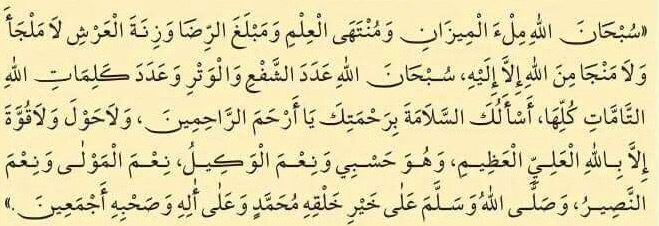 «سُبْحَانَ اللهِ مِلْءَ الْمِيزَانِ وَمُنْتَهَى الْعِلْمِ وَمَبْلَغَ الرِّضَا وَزِنَةَ الْعَرْشِ لَا مَلْجَأَ
وَلَا مَنْجَا مِنَ اللهِ إِلَّا إِلَيْهِ، سُبْحَانَ اللهِ عَدَدَ الشَّفْعِ وَالْوَتْرِ وَعَدَدَ كَلِمَاتِ اللهِ
التَّامَّاتِ كُلِّهَا، أَسْأَلُكَ السَّلَامَةَ بِرَحْمَتِكَ يَا أَرْحَمَ الرَّاحِمِينَ، وَلَا حَوْلَ وَلَا قُوَّةَ
إِلَّا بِاللهِ الْعَلِيِّ الْعَظِيمِ، وَهُوَ حَسْبِي وَنِعْمَ الْوَكِيلُ، نِعْمَ الْمَوْلَى وَنِعْمَ
النَّصِيرُ، وَصَلَّى اللهُ وَسَلَّمَ عَلَى خَيْرِ خَلْقِهِ مُحَمَّدٍ وَعَلَى أَلِهِ وَصَحْبِهِ أَجْمَعِينَ.»